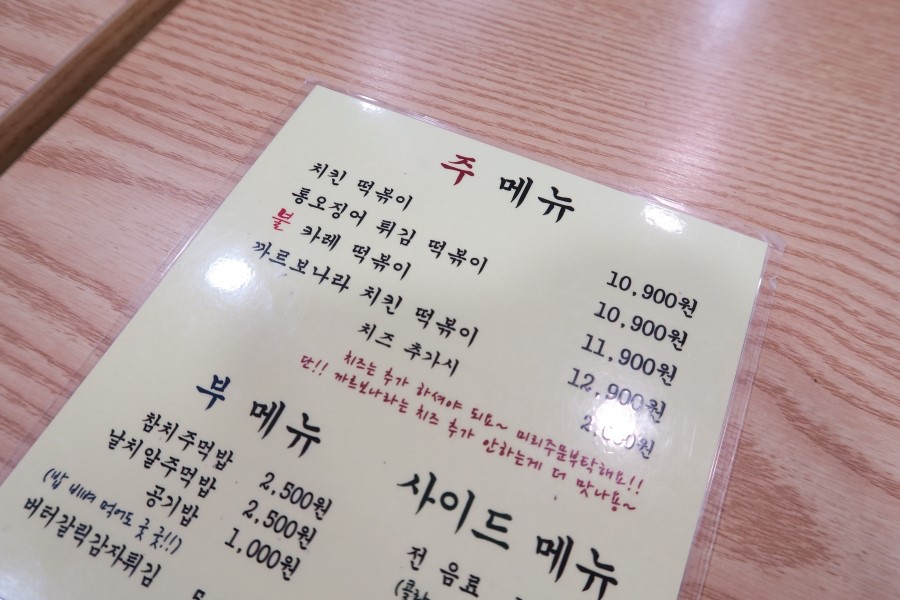 주 메뉴
치킨 떡볶이 10,900원
통오징어 튀김 떡볶이 10,900원
불 카레 떡볶이 11,900원
까르보나라 치킨 떡볶이 12,900원
치즈 추가시
치즈는 추가 하셔야 되요~ 미리주문부탁해요!!
단!! 까르보나라는 치즈 추가 안하는게 더 맛나용~
부 메뉴
참치주먹밥 2,500원
날치알주먹밥 2,500원
공기밥 1,000원
(밥 비벼 먹어도 굿굿!!)
버터갈릭감자튀김
사이드 메뉴
전 음료